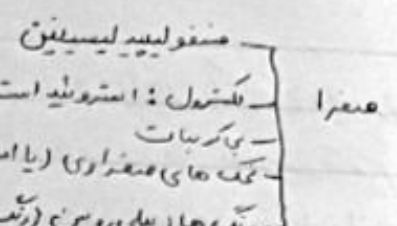 فسفولیپید لیستین
صفرا
کلسترول : استروئید است
بی کربنات
نمک های صفراوی (یا
رنگ های بیلی روبین (رنگ